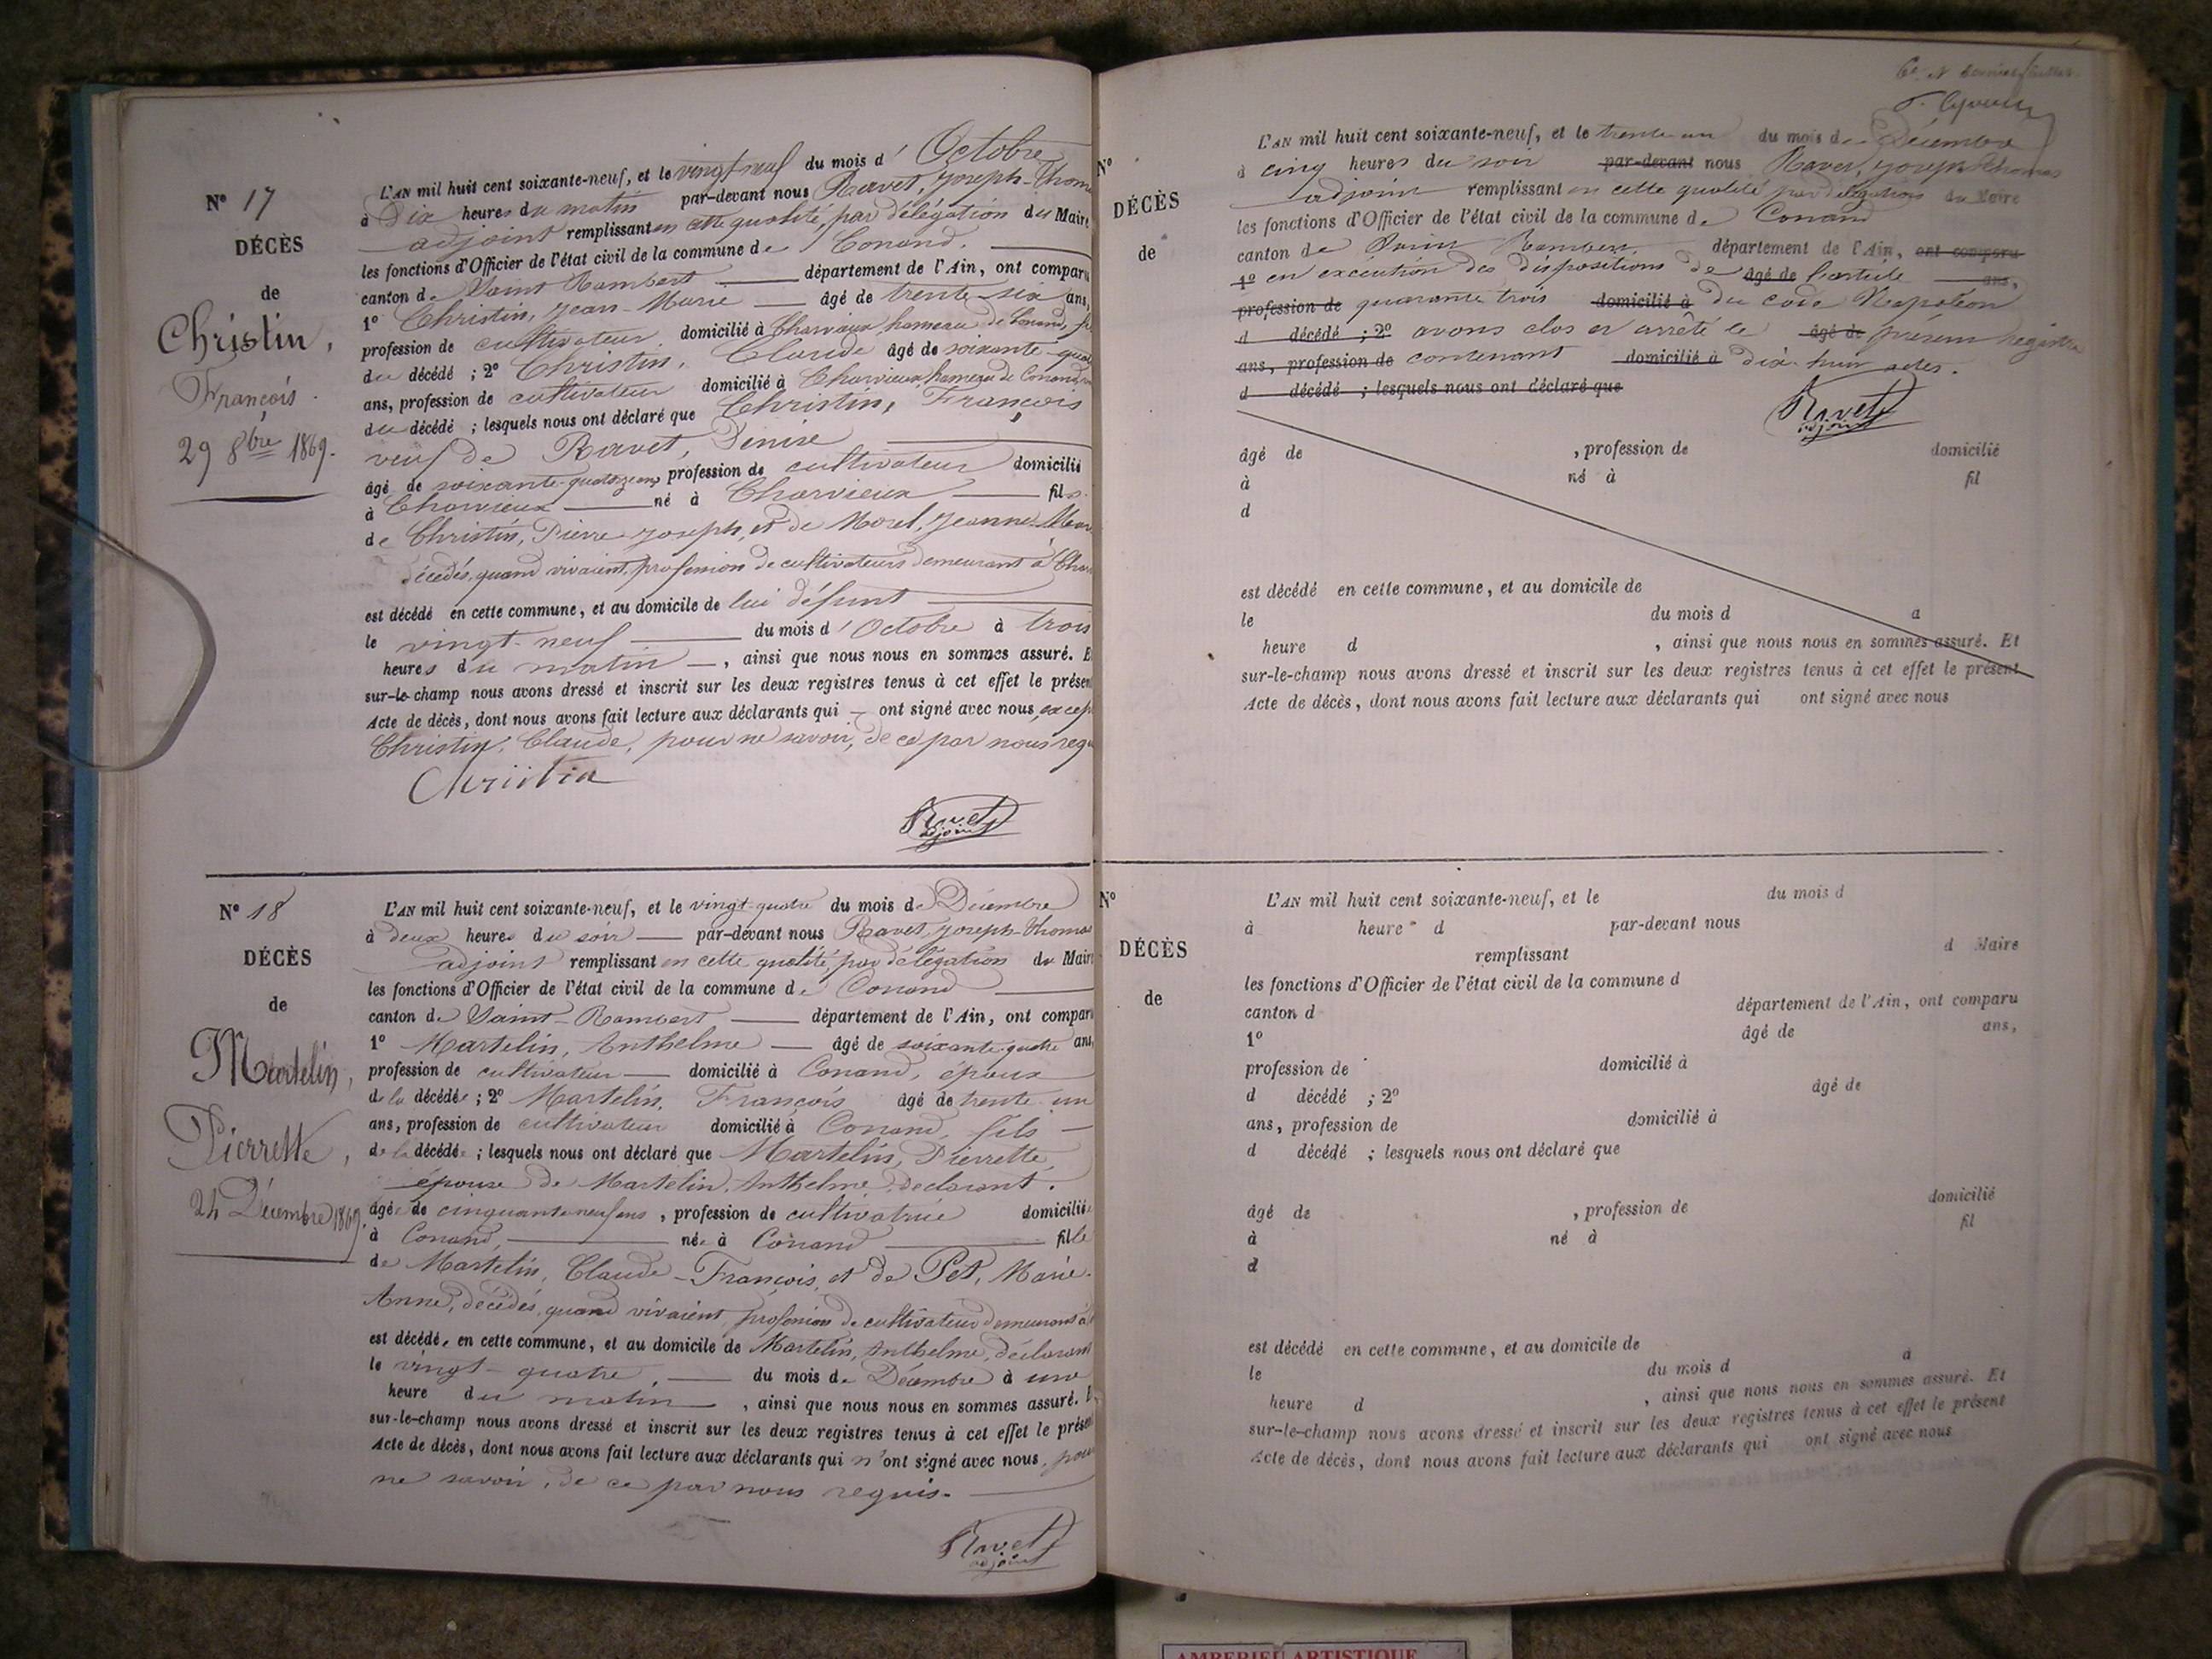 N° 17
DÉCÈS
de
Christin,
François.
29 8bre 1869.
L'AN mil huit cent soixante-neuf, et le vingt neuf du mois d'Octobre
à Dix heures du matin par-devant nous Ravet, Joseph-Thom
adjoint remplissant en cette qualité, par délégation du Maire
les fonctions d'Officier de l'état civil de la commune de Conand.
canton de Saint Rambert département de l'Ain, ont comparu
1° Christin, Jean-Marie âgé de trente-six ans,
profession de cultivateur domicilié à Charvieux, hameau de Conand,
du décédé ; 2° Christin, Claude âgé de soixante-
ans, profession de cultivateur domicilié à Charvieux, hameau de Conand,
du décédé ; lesquels nous ont déclaré que Christin, François
veuf de Ravet, Denise
âgé de soixante-quatorze ans, profession de cultivateur domicilié
à Charvieux né à Charvieux fils
de Christin, Pierre Joseph, et de Morel, Jeanne-Mar
décédés, quand vivaient, profession de cultivateurs demeurant à Char
est décédé en cette commune, et au domicile de lui défunt
le vingt-neuf du mois d'Octobre à trois
heures du matin, ainsi que nous nous en sommes assuré. E
sur-le-champ nous avons dressé et inscrit sur les deux registres tenus à cet effet le présen
Acte de décès, dont nous avons fait lecture aux déclarants qui ont signé avec nous, excep
Christin, Claude, pour ne savoir, de ce par nous requ
Christin
Ravet
adjoint
N° 18
DÉCÈS
de
Martelin,
Pierrette,
24 Décembre 1869.
L'AN mil huit cent soixante-neuf, et le vingt-quatre du mois de Décembre
à deux heures du soir par-devant nous Ravet, Joseph-Thomas
adjoint remplissant en cette qualité par délégation du Mair
les fonctions d'Officier de l'état civil de la commune de Conand
canton de Saint-Rambert département de l'Ain, ont compar
1° Martelin, Anthelme âgé de soixante-quatre ans,
profession de cultivateur domicilié à Conand, époux
de la décédée ; 2° Martelin, François âgé de trente un
ans, profession de cultivateur domicilié à Conand, fils
de la décédée ; lesquels nous ont déclaré que Martelin, Pierrette,
épouse de Martelin, Anthelme, déclarant.
âgée de cinquante-neuf ans, profession de cultivatrice domiciliée
à Conand, née à Conand fille
de Martelin, Claude-François, et de Pet, Marie-
Anne, décédés, quand vivaient, profession de cultivateurs demeurant à
est décédée en cette commune, et au domicile de Martelin, Anthelme, déclarant
le vingt-quatre du mois de Décembre à une
heure du matin, ainsi que nous nous en sommes assuré. E
sur-le-champ nous avons dressé et inscrit sur les deux registres tenus à cet effet le présen
Acte de décès, dont nous avons fait lecture aux déclarants qui n'ont signé avec nous, pour
ne savoir, de ce par nous requis.
Ravet
adjoint
N°
DÉCÈS
de
L'AN mil huit cent soixante-neuf, et le trente un du mois de Décembre
à cinq heures du soir par-devant nous Ravet, Joseph Thomas
adjoint remplissant en cette qualité par délégation du Maire
les fonctions d'Officier de l'état civil de la commune de Conand
canton de Saint Rambert département de l'Ain, ont comparu
1° en exécution des dispositions de âgé de l'article ans,
profession de quarante trois domicilié à du code Napoléon
d décédé ; 2° avons clos et arrêté le âgé de présent registre
ans, profession de contenant domicilié à dix-huit actes.
d décédé ; lesquels nous ont déclaré que
Ravet
adjoint
âgé de , profession de domicilié
à né à fil
d
est décédé en cette commune, et au domicile de
le du mois d à
heure d , ainsi que nous nous en sommes assuré. Et
sur-le-champ nous avons dressé et inscrit sur les deux registres tenus à cet effet le présent
Acte de décès, dont nous avons fait lecture aux déclarants qui ont signé avec nous
N°
DÉCÈS
de
L'AN mil huit cent soixante-neuf, et le du mois d
à heure d par-devant nous
remplissant d Maire
les fonctions d'Officier de l'état civil de la commune d
canton d département de l'Ain, ont comparu
1° âgé de ans,
profession de domicilié à
d décédé ; 2° âgé de
ans, profession de domicilié à
d décédé ; lesquels nous ont déclaré que
âgé de , profession de domicilié
à né à fil
d
est décédé en cette commune, et au domicile de
le du mois d à
heure d , ainsi que nous nous en sommes assuré. Et
sur-le-champ nous avons dressé et inscrit sur les deux registres tenus à cet effet le présent
Acte de décès, dont nous avons fait lecture aux déclarants qui ont signé avec nous
AMBERIEU ARTISTIQUE